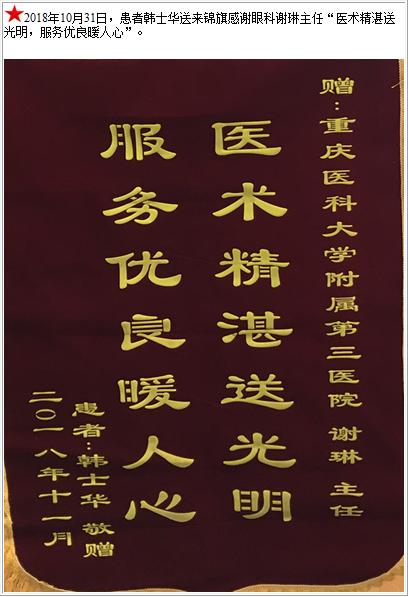 ★2018年10月31日，患者韩士华送来锦旗感谢眼科谢琳主任“医术精湛送
光明，服务优良暖人心”。
赠：重庆医科大学附属第三医院 谢琳 主任
医术精湛送光明
服务优良暖人心
患者：韩士华 敬赠
二〇一八年十一月